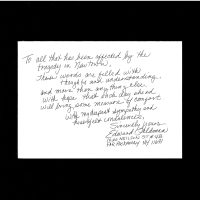 To all that has been affected by the
tragedy in Newtown,
These words are filled with
thoughts and understanding
and more than anything else
with hope that each day ahead
will bring some measure of comfort
with deepest sympathy and
heartfelt condolences,
Sincerely yours
Edward
NELSON ST
FAR ROCKAWAY NY 11691